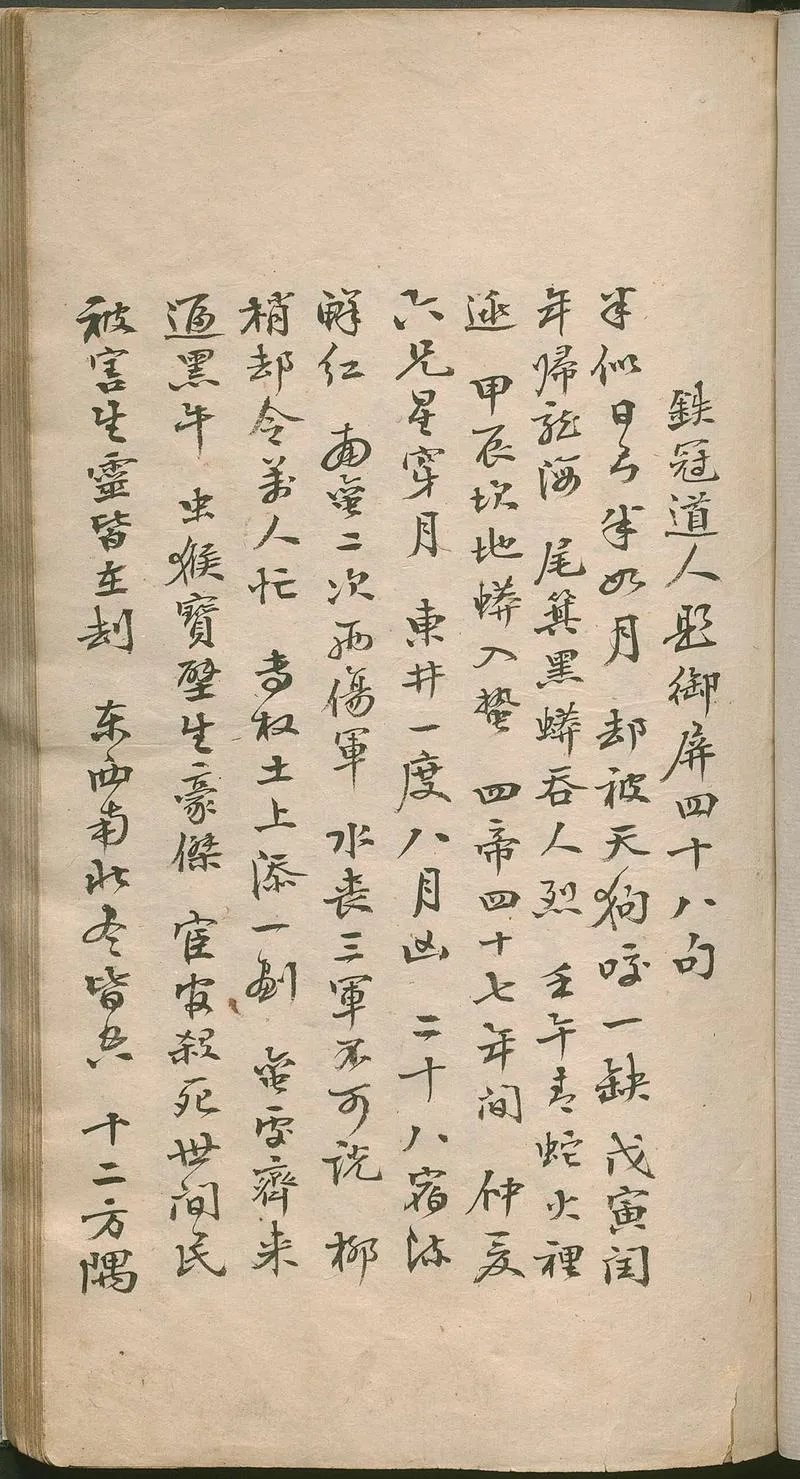 鉄冠道人題御屏四十八句
半似日兮半如月 却被天狗咬一缺 戊寅閏
年歸龍海 尾箕黑蟒吞人烈 壬午青蛇火裡
逃 甲辰坎地蟒入蟄 四帝四十七年間 仲夏
六兄星穿月 東井一度八月凶 二十八宿
鮮紅 南蛮二次两傷軍 水丧三軍不可说 柳
梢却令萬人忙 專权土上添一劍 蛮雯齊来
逼黑牛 虫猴寶壁生豪傑 宦官殺死世間民
被害生靈皆在劫 东西南北冬皆 十二方隅